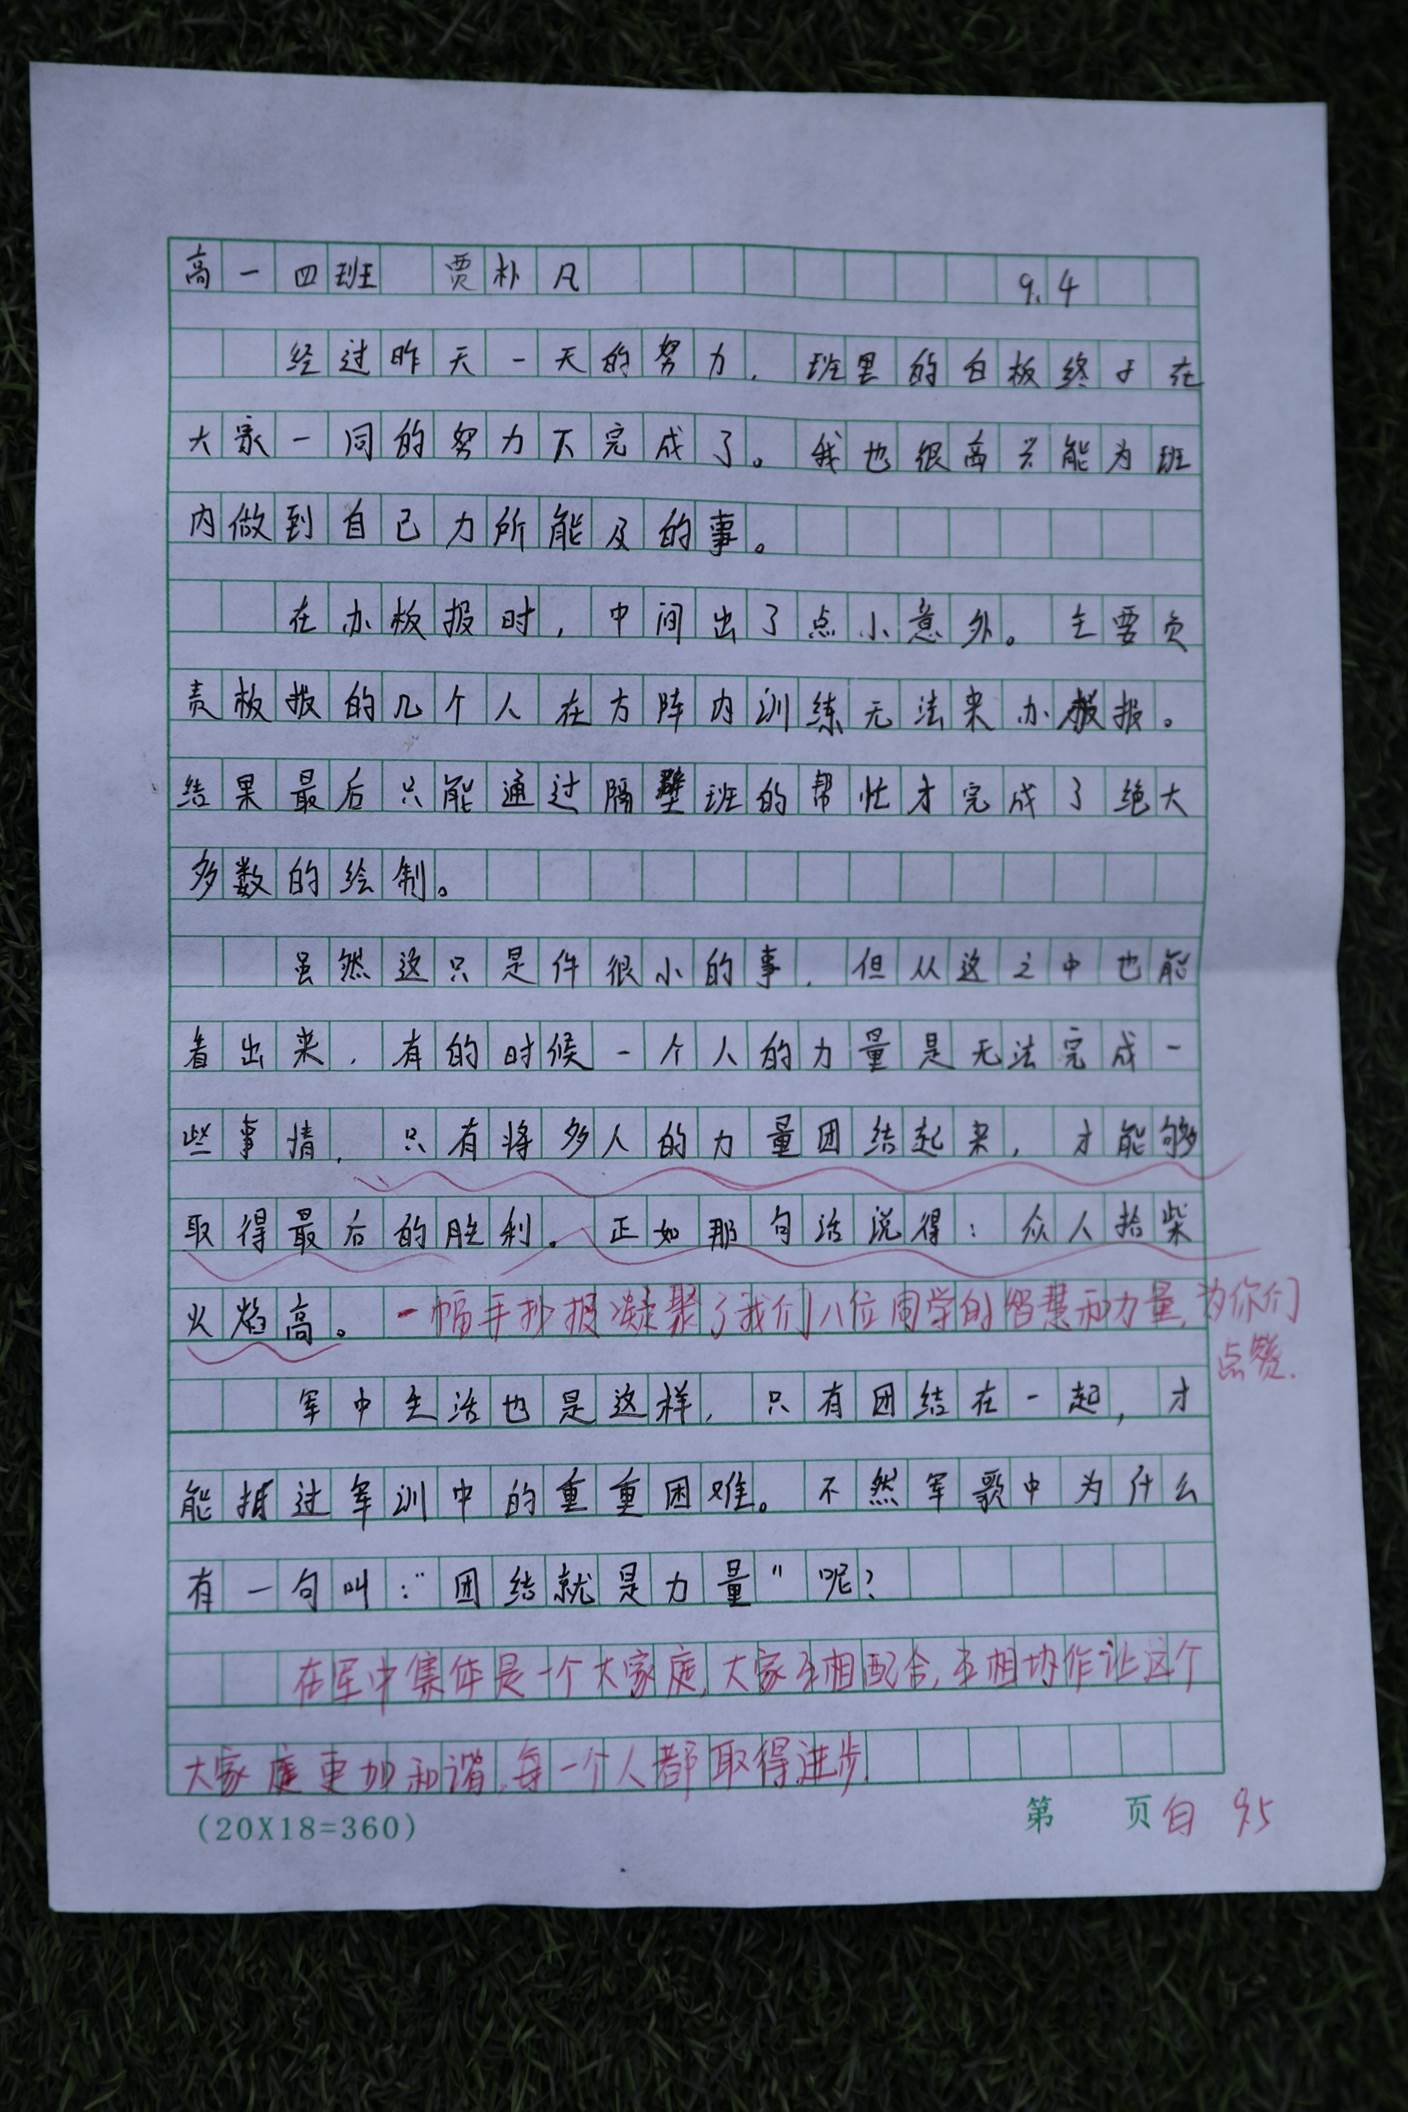 高一四班 贾朴凡 9.4
经过昨天一天的努力，班里的白板终于在
大家一同的努力下完成了。我也很高兴能为班
内做到自己力所能及的事。
在办板报时，中间出了点小意外。主要负
责板报的几个人在方阵内训练无法来办板报。
结果最后只能通过隔壁班的帮忙才完成了绝大
多数的绘制。
虽然这只是件很小的事，但从这之中也能
看出来，有的时候一个人的力量是无法完成一
些事情，只有将多人的力量团结起来，才能够
取得最后的胜利。正如那句话说得：众人拾柴
火焰高。一幅手抄报凝聚了我们八位同学的智慧和力量，为你们
点赞.
军中生活也是这样，只有团结在一起，才
能抵过军训中的重重困难。不然军歌中为什么
有一句叫：“团结就是力量”呢？
在军中集体是一个大家庭，大家互相配合，互相协作让这个
大家庭更加和谐，每一个人都取得进步.
(20X18=360) 第 页 白 9.5